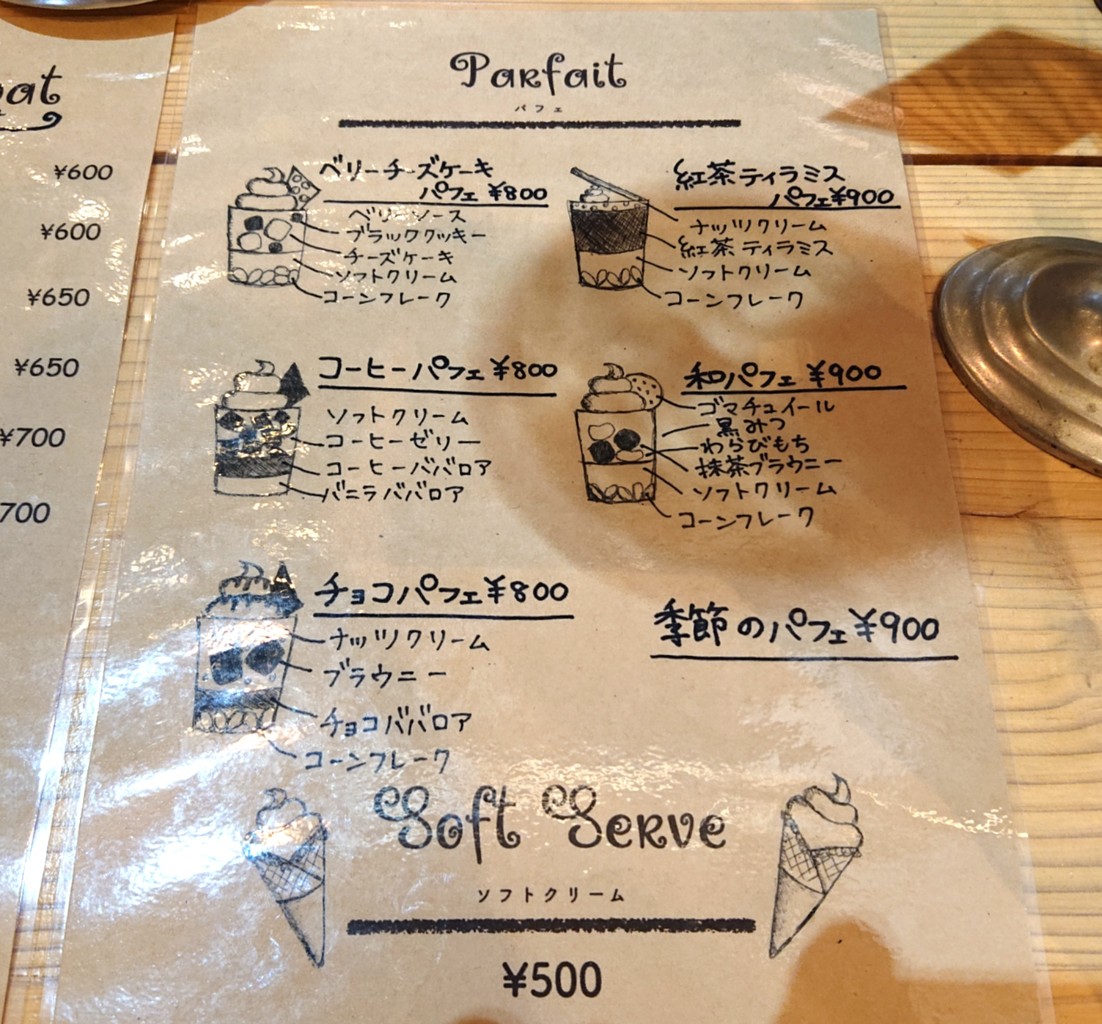 ¥600
¥600
¥650
¥650
¥700
700
Parfait
パフェ
ベリーチーズケーキ
パフェ ¥800
ベリーソース
ブラッククッキー
チーズケーキ
ソフトクリーム
コーンフレーク
紅茶ティラミス
パフェ¥900
ナッツクリーム
紅茶ティラミス
ソフトクリーム
コーンフレーク
コーヒーパフェ ¥800
ソフトクリーム
コーヒーゼリー
コーヒーババロア
バニラババロア
和パフェ ¥900
ゴマチュイール
黒みつ
わらびもち
抹茶ブラウニー
ソフトクリーム
コーンフレーク
チョコパフェ¥800
ナッツクリーム
ブラウニー
チョコババロア
コーンフレーク
季節のパフェ¥900
Soft Serve
ソフトクリーム
¥500